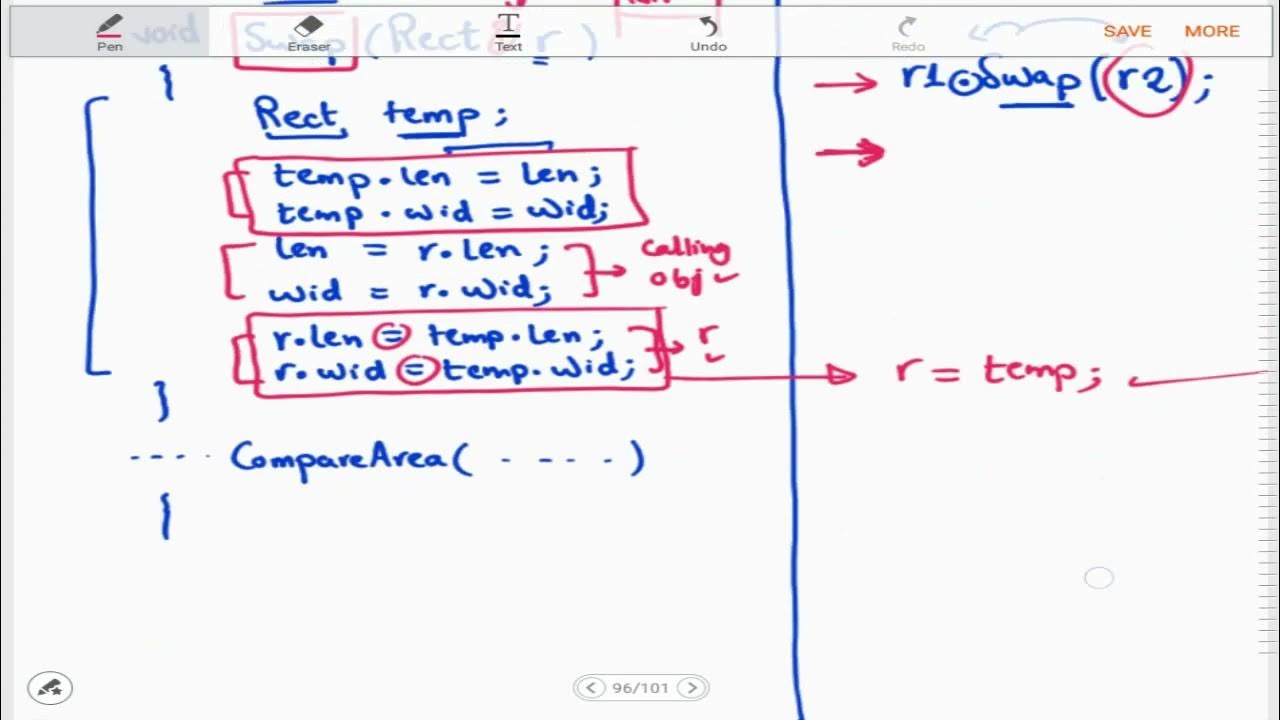 Pen
Eraser
Text
Undo
Redo
SAVE
MORE
void Swap (Rect r )
{
Rect temp ;
temp.len = len ;
temp.wid = wid;
len = r.len ;
wid = r.wid;
calling
obj
r.len = temp.len;
r.wid = temp.wid;
r
}
.... CompareArea( ..... )
{
r1.Swap(r2);
r = temp;
96/101